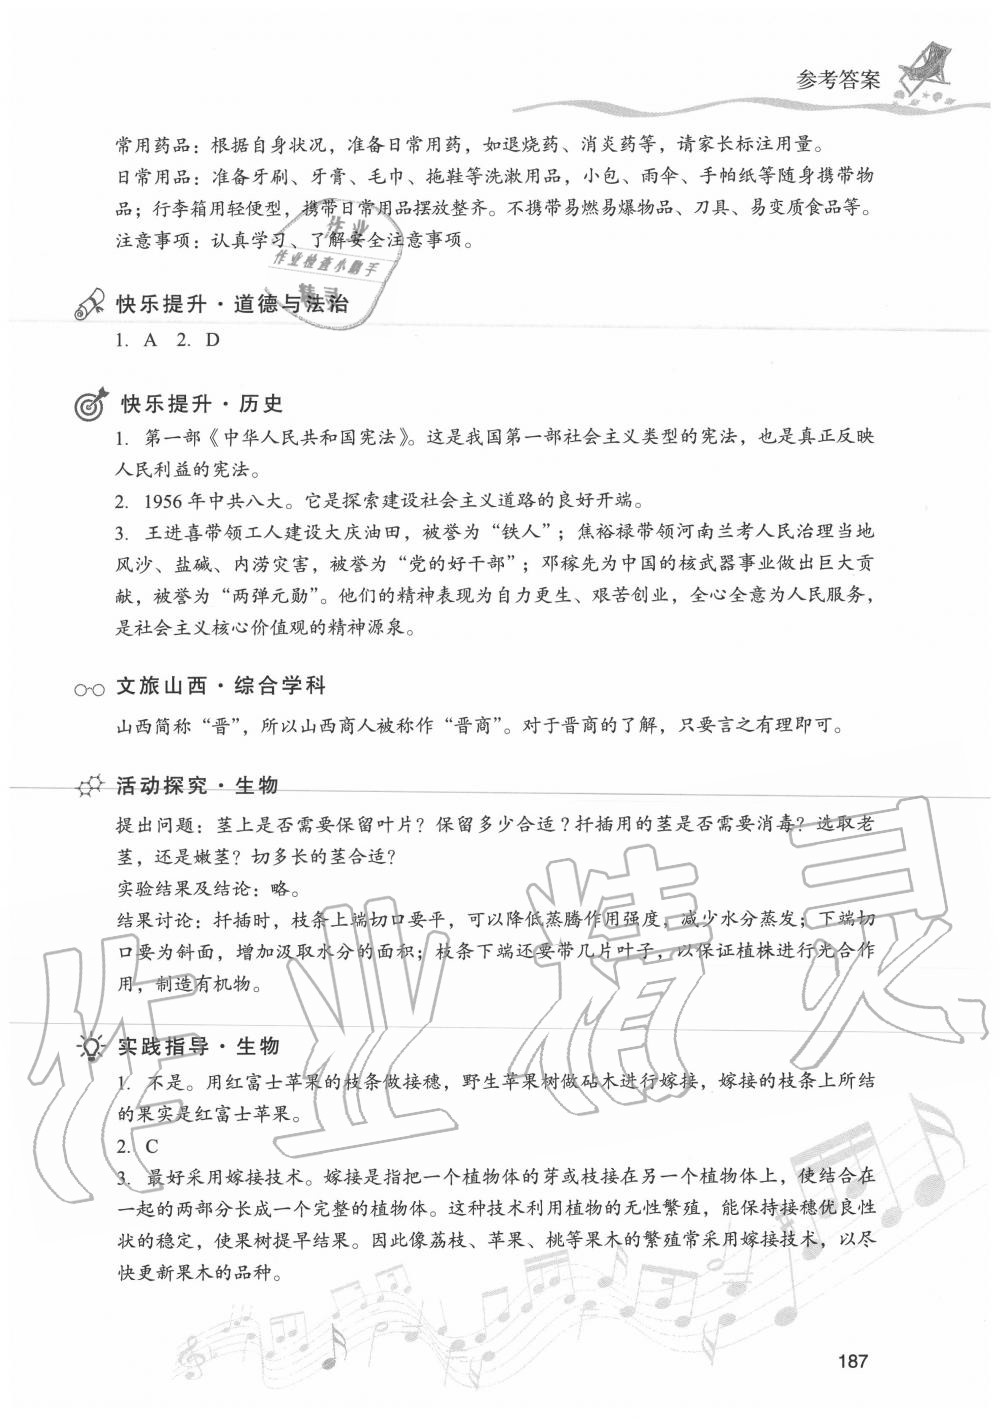 参考答案
常用药品：根据自身状况，准备日常用药，如退烧药、消炎药等，请家长标注用量。
日常用品：准备牙刷、牙膏、毛巾、拖鞋等洗漱用品，小包、雨伞、手帕纸等随身携带物
品；行李箱用轻便型，携带日常用品摆放整齐。不携带易燃易爆物品、刀具、易变质食品等。
注意事项：认真学习、了解安全注意事项。
作业
作业检查小助手
精灵
快乐提升·道德与法治
1. A 2. D
快乐提升·历史
1. 第一部《中华人民共和国宪法》。这是我国第一部社会主义类型的宪法，也是真正反映
人民利益的宪法。
2. 1956 年中共八大。它是探索建设社会主义道路的良好开端。
3. 王进喜带领工人建设大庆油田，被誉为“铁人”；焦裕禄带领河南兰考人民治理当地
风沙、盐碱、内涝灾害，被誉为“党的好干部”；邓稼先为中国的核武器事业做出巨大贡
献，被誉为“两弹元勋”。他们的精神表现为自力更生、艰苦创业，全心全意为人民服务，
是社会主义核心价值观的精神源泉。
文旅山西·综合学科
山西简称“晋”，所以山西商人被称作“晋商”。对于晋商的了解，只要言之有理即可。
活动探究·生物
提出问题：茎上是否需要保留叶片？保留多少合适？扦插用的茎是否需要消毒？选取老
茎，还是嫩茎？切多长的茎合适？
实验结果及结论：略。
结果讨论：扦插时，枝条上端切口要平，可以降低蒸腾作用强度，减少水分蒸发；下端切
口要为斜面，增加汲取水分的面积；枝条下端还要带几片叶子，以保证植株进行光合作
用，制造有机物。
作业精灵
实践指导·生物
1. 不是。用红富士苹果的枝条做接穗，野生苹果树做砧木进行嫁接，嫁接的枝条上所结
的果实是红富士苹果。
2. C
3. 最好采用嫁接技术。嫁接是指把一个植物体的芽或枝接在另一个植物体上，使结合在
一起的两部分长成一个完整的植物体。这种技术利用植物的无性繁殖，能保持接穗优良性
状的稳定，使果树提早结果。因此像荔枝、苹果、桃等果木的繁殖常采用嫁接技术，以尽
快更新果木的品种。
187